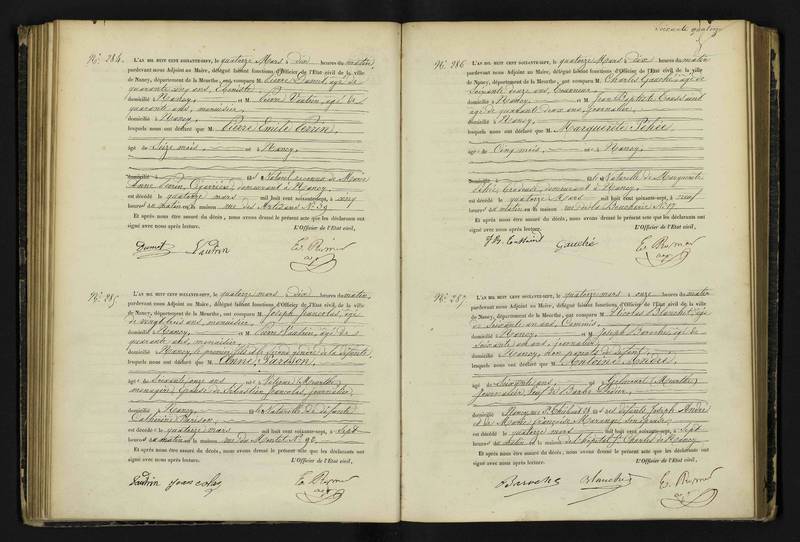 Soixante quatorze
N°. 284.
L'AN MIL HUIT CENT SOIXANTE-SEPT, le quatorze Mars à dix heures du matin,
pardevant nous Adjoint au Maire, délégué faisant fonctions d'Officier de l'Etat civil de la ville
de Nancy, département de la Meurthe, ont comparu M. Pierre Dumot, âgé de
quarante cinq ans, Ebéniste,
domicilié à Nancy, et M. Pierre Vautrin, âgé de
quarante ans, menuisier,
domicilié à Nancy,
lesquels nous ont déclaré que M. Pierre Emile Perrin,
âgé de Seize mois, né à Nancy,
domicilié à fils Naturel reconnu de Marie
Anne Perrin, Cigarière, demeurant à Nancy,
est décédé le quatorze mars mil huit cent soixante-sept, à
heures du matin en la maison rue des Artisans N° 39
Et après nous être assuré du décès, nous avons dressé le présent acte que les déclarants ont
signé avec nous après lecture. L'Officier de l'Etat civil,
Dumot Vautrin
N°. 285.
L'AN MIL HUIT CENT SOIXANTE-SEPT, le quatorze mars à dix heures du matin,
pardevant nous Adjoint au Maire, délégué faisant fonctions d'Officier de l'Etat civil de la ville
de Nancy, département de la Meurthe, ont comparu M. Joseph Jeancolas, âgé
de vingt trois ans, menuisier,
domicilié à Nancy, et M. Pierre Vautrin, âgé de
quarante ans, menuisier,
domicilié à Nancy, le premier fils et le second gendre de la défunte,
lesquels nous ont déclaré que M. Anne Parisson,
âgé de Soixante onze ans né à (Meurthe)
ménagère, Epouse de Sébastien Jeancolas, journalier,
domicilié à Nancy, fille Naturelle de défunte
Catherine Parisson
est décédé le quatorze mars mil huit cent soixante-sept, à Sept
heures du matin en la maison rue du Montet N° 92.
Et après nous être assuré du décès, nous avons dressé le présent acte que les déclarants ont
signé avec nous après lecture. L'Officier de l'Etat civil,
Vautrin Jeancolas
N°. 286
L'AN MIL HUIT CENT SOIXANTE-SEPT, le quatorze Mars à dix heures du matin
pardevant nous Adjoint au Maire, délégué faisant fonctions d'Officier de l'Etat civil de la ville
de Nancy, département de la Meurthe, ont comparu M. Charles Gauché, âgé de
Soixante
domicilié à Nancy, et M. Jean Baptiste Toussaint
âgé de quarante deux ans, journalier,
domicilié à Nancy,
lesquels nous ont déclaré que M. Marguerite
âgé de Cinq mois, né à Nancy,
domicilié à fille Naturelle de Marguerite
demeurant à Nancy,
est décédé le quatorze Mars mil huit cent soixante-sept, à neuf
heures du matin en la maison rue de la Boucherie N° 19
Et après nous être assuré du décès, nous avons dressé le présent acte que les déclarants ont
signé avec nous après lecture. L'Officier de l'Etat civil,
J. B. Toussaint Gauché
N°. 287.
L'AN MIL HUIT CENT SOIXANTE-SEPT, le quatorze mars à onze heures du matin
pardevant nous Adjoint au Maire, délégué faisant fonctions d'Officier de l'Etat civil de la ville
de Nancy, département de la Meurthe, ont comparu M. Nicolas Blanchet, âgé
de Soixante un ans, Commis,
domicilié à Nancy, et M. Joseph Baroche, âgé de
Soixante ans, journalier,
domicilié à Nancy, non parents du défunt,
lesquels nous ont déclaré que M. Antoine André
âgé de Soixante ans, né à (Meurthe)
journalier, Veuf de Barbe
domicilié à Nancy, rue St. Thiébaut 29, fils des défunts Joseph André
et de Marie Françoise
est décédé le quatorze mars mil huit cent soixante-sept, à Sept
heures du matin en la maison de l'hôpital St. Charles de Nancy
Et après nous être assuré du décès, nous avons dressé le présent acte que les déclarants ont
signé avec nous après lecture. L'Officier de l'Etat civil,
Baroche Blanchet